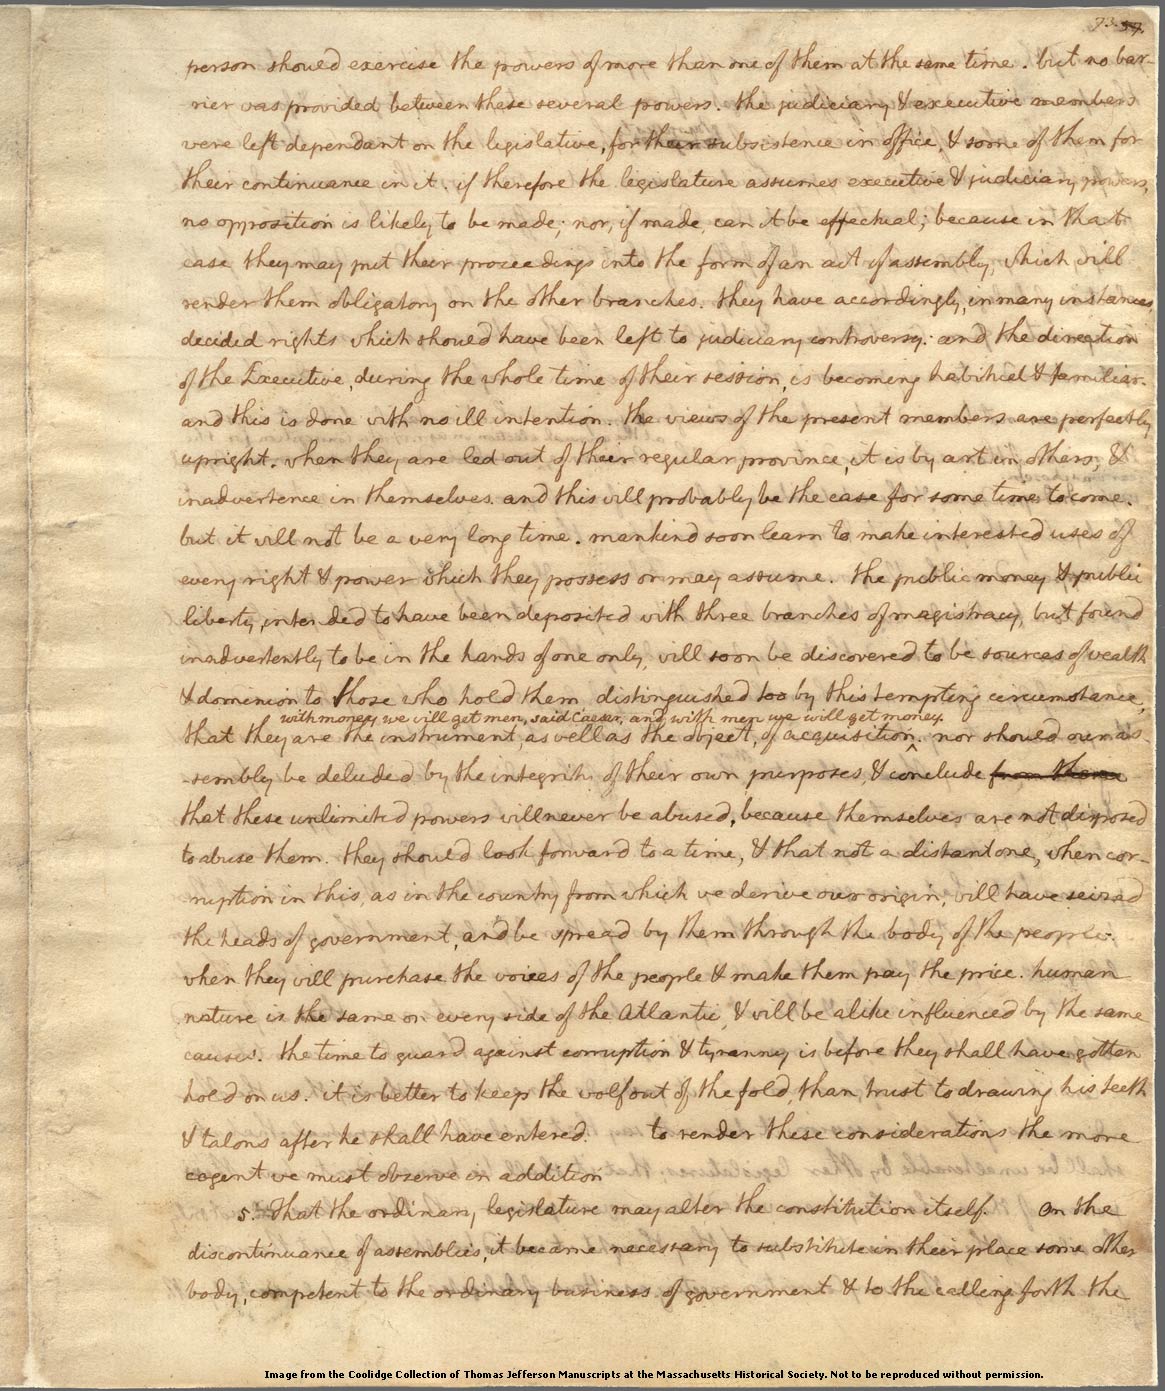 73. 57.
person should exercise the powers of more than one of them at the same time. but no bar-
-rier was provided between these several powers. the judiciary & executive members
were left dependant on the legislative, for their subsistence in office, & some of them for
their continuance in it. if therefore the legislature assumes executive & judiciary powers,
no opposition is likely to be made; nor, if made, can it be effectual; because in that
case they may put their proceedings into the form of an act of assembly, which will
render them obligatory on the other branches. they have accordingly, in many instances,
decided rights which should have been left to judiciary controversy: and the direction
of the Executive, during the whole time of their session, is becoming habitual & familiar.
and this is done with no ill intention. the views of the present members are perfectly
upright. when they are led out of their regular province, it is by art in others, &
inadvertence in themselves. and this will probably be the case for some time to come.
but it will not be a very long time. mankind soon learn to make interested uses of
every right & power which they possess or may assume. the public money & public
liberty, intended to have been deposited with three branches of magistracy, but found
inadvertently to be in the hands of one only, will soon be discovered to be sources of wealth
& dominion to those who hold them, distinguished too by this tempting circumstance,
with money we will get men, said Caesar, and with men we will get money.
that they are the instrument, as well as the object, of acquisition. ^ nor should our as-
-sembly be deluded by the integrity of their own purposes, & conclude from them
that these unlimited powers will never be abused, because themselves are not disposed
to abuse them. they should look forward to a time, & that not a distant one, when cor-
-ruption in this, as in the country from which we derive our origin, will have seized
the heads of government, and be spread by them through the body of the people.
when they will purchase the voices of the people & make them pay the price. human
nature is the same on every side of the Atlantic, & will be alike influenced by the same
causes. the time to guard against corruption & tyranny is before they shall have gotten
hold on us. it is better to keep the wolf out of the fold, than trust to drawing his teeth
& talons after he shall have entered. to render these considerations the more
cogent we must observe in addition
5. That the ordinary legislature may alter the constitution itself. On the
discontinuance of assemblies, it became necessary to substitute in their place some other
body, competent to the ordinary business of government & to the calling forth the
Image from the Coolidge Collection of Thomas Jefferson Manuscripts at the Massachusetts Historical Society. Not to be reproduced without permission.